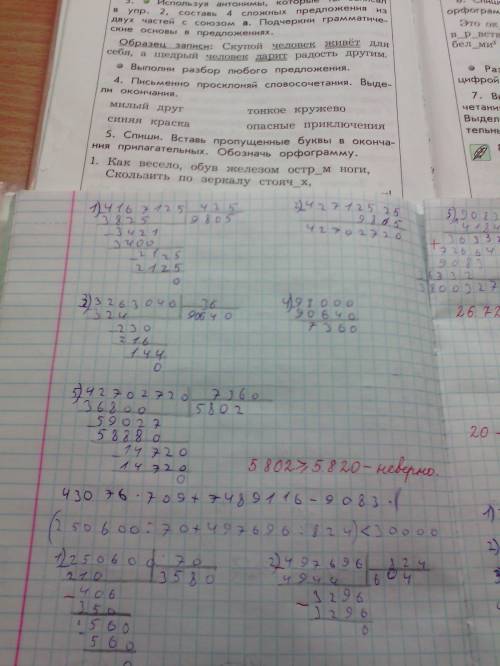 3. Используя антонимы, которые
в упр. 2, составь 4 сложных предложения из
двух частей с союзом а. Подчеркни грамматиче-
ские основы в предложениях.
Образец записи: Скупой человек живёт для
себя, а щедрый человек дарит радость другим.
• Выполни разбор любого предложения.
4. Письменно просклоняй словосочетания. Выде-
ли окончания.
милый друг тонкое кружево
синяя краска опасные приключения
5. Спиши. Вставь пропущенные буквы в оконча-
ния прилагательных. Обозначь орфограмму.
1. Как весело, обув железом остр_м ноги,
Скользить по зеркалу стояч_х,
1) 4167125 425
3825 9805
3421
3400
2125
2125
0
2) 427125 25
9805
42702720
3) 3263040 36
324 90640
230
216
144
0
4) 98000
90640
7360
5) 42702720 7360
36800 5802
59027
58880
14720
14720
0
5802>5820-неверно.
43076·709+7489116-9083·
(250600:70+497696:824)<30000
1) 250600 70
210 3580
406
350
560
560
0
2) 497696 824
4944 604
3296
3296
0
5) 9083
+ 36332
72664
9083
6332
26.72
20-